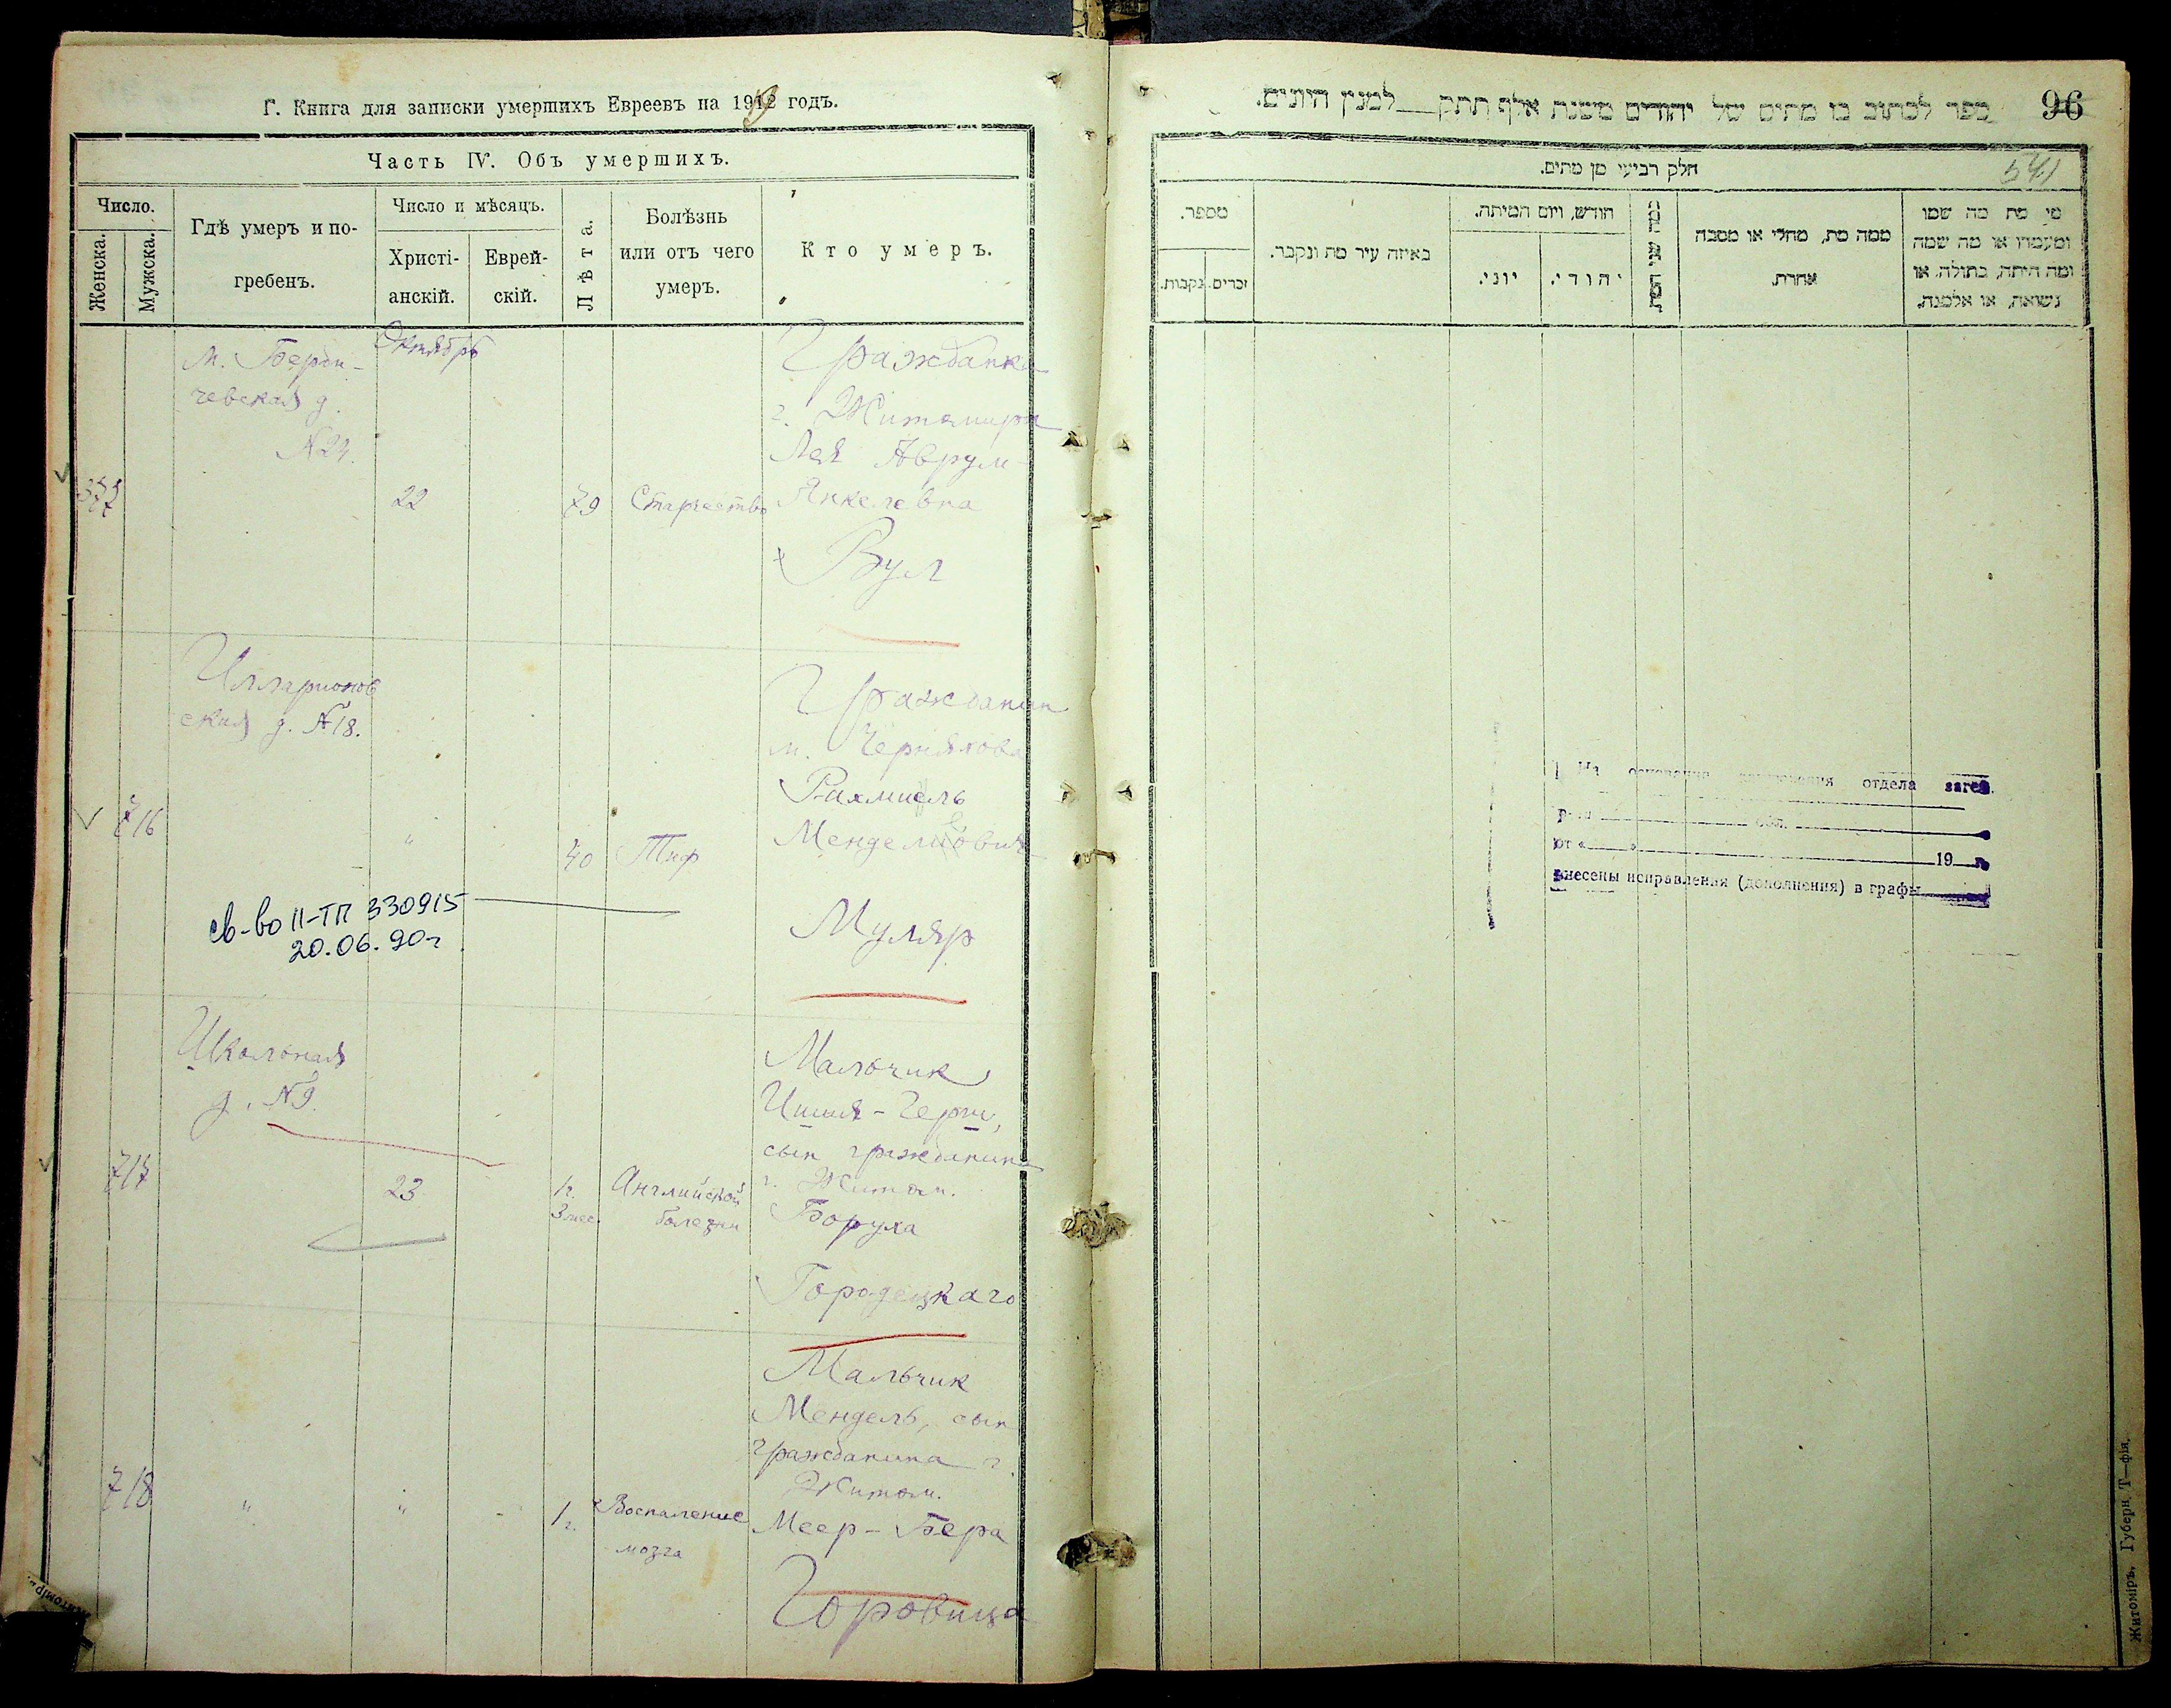 Г. Книга для записки умершихъ Евреевъ на 1919 годъ.
Часть IV. Объ умершихъ.
Число.
Женска.
Мужска.
Гдѣ умеръ и по-
гребенъ.
Число и мѣсяцъ.
Христі-
анскій.
Еврей-
скій.
Лѣта.
Болѣзнь
или отъ чего
умеръ.
Кто умеръ.
М. Берди-
чевская д.
№24.
Октябрь
377
22
79
Старчество
Гражданка
г. Житомира
Лея Аврум-
Янкелевна
Вул
Илларионов
ская д. №18.
716
"
40
Тиф
Гражданин
м. Черняхова
Рахмиель
Менделевич
Муляр
св-во II-ТП 330915
20.06.90г
Школьная
д. №9.
717
23
1г.
3 мес.
Английской
болезни
Мальчик
сын гражданина
г. Житом.
Боруха
Городецкаго
718
"
"
1г.
Воспаление
мозга
Мальчик
Мендель, сын
гражданина г.
Житом.
Меер-Бера
Горовица
ספר לכתוב בו מתים של יהודים משנת אלף תתק—למנין היונים.
96
541
חלק רביעי מן מתים.
מספר.
זכרים.
נקבות.
באיזה עיר מת ונקבר.
חודש, ויום המיתה.
יוני.
יהודי.
כמה שני המת
ממה מת, מחלי או מסבה
אחרת.
מי מת מה שמו
ומעמדו או מה שמה
ומה היתה, בתולה, או
נשואה, או אלמנה.
На основании отдела загса
обл.
от « » 19 г.
внесены исправления (дополнения) в графы
Житоміръ, Губерн. Т—фія.